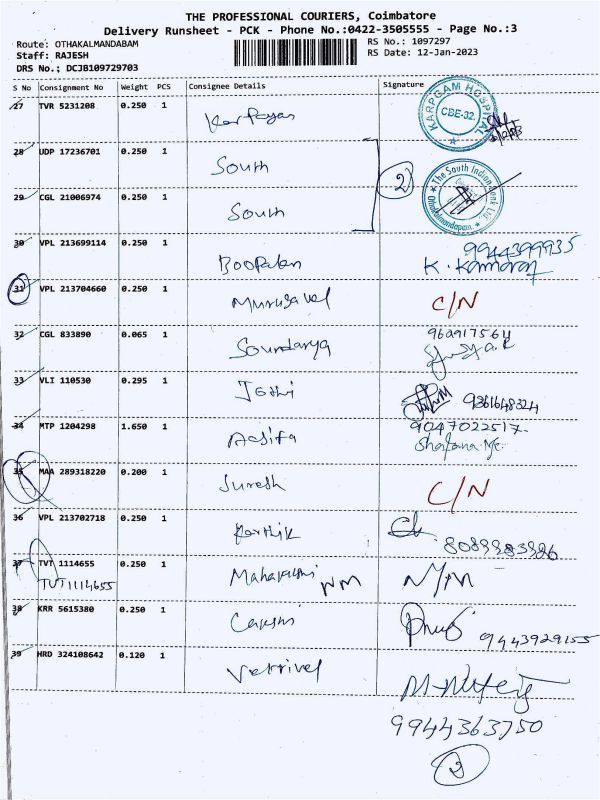 THE PROFESSIONAL COURIERS, Coimbatore
Delivery Runsheet - PCK - Phone No.:0422-3505555 - Page No.:3
Route: OTHAKALMANDABAM RS No.: 1097297
Staff: RAJESH RS Date: 12-Jan-2023
DRS No.; DCJB109729703
S No Consignment No Weight PCS Consignee Details Signature
27 TVR 5231208 0.250 1 KARPGAM HOSPITAL CBE-32.
28 UDP 17236701 0.250 1 South 2
29 CGL 21006974 0.250 1 South The South Indian Bank Ltd. Othakalmandapam.
30 VPL 213699114 0.250 1 Boopalan 9944399935
K. Kamaraj
31 VPL 213704660 0.250 1 Murugavel C/N
32 CGL 833890 0.065 1 Soundarya
33 VLI 110530 0.295 1 Jothi 9361648324
34 MTP 1204298 1.650 1 Aasifa 9047022517.
35 MAA 289318220 0.200 1 Suresh C/N
36 VPL 213702718 0.250 1 Karthik
8089983986
37 TVT 1114655 0.250 1 NM N/M
TVT 1114655
38 KRR 5615380 0.250 1 9443929155
39 HRD 324108642 0.120 1 Vetrivel
9944363750